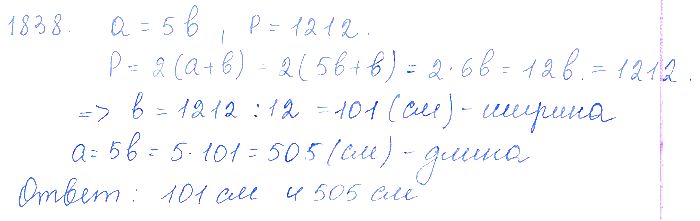 1838. a = 5b, P = 1212.
P = 2(a+b) = 2(5b+b) = 2·6b = 12b = 1212.
=> b = 1212 : 12 = 101 (см) - ширина
a = 5b = 5·101 = 505 (см) - длина
Ответ: 101 см и 505 см